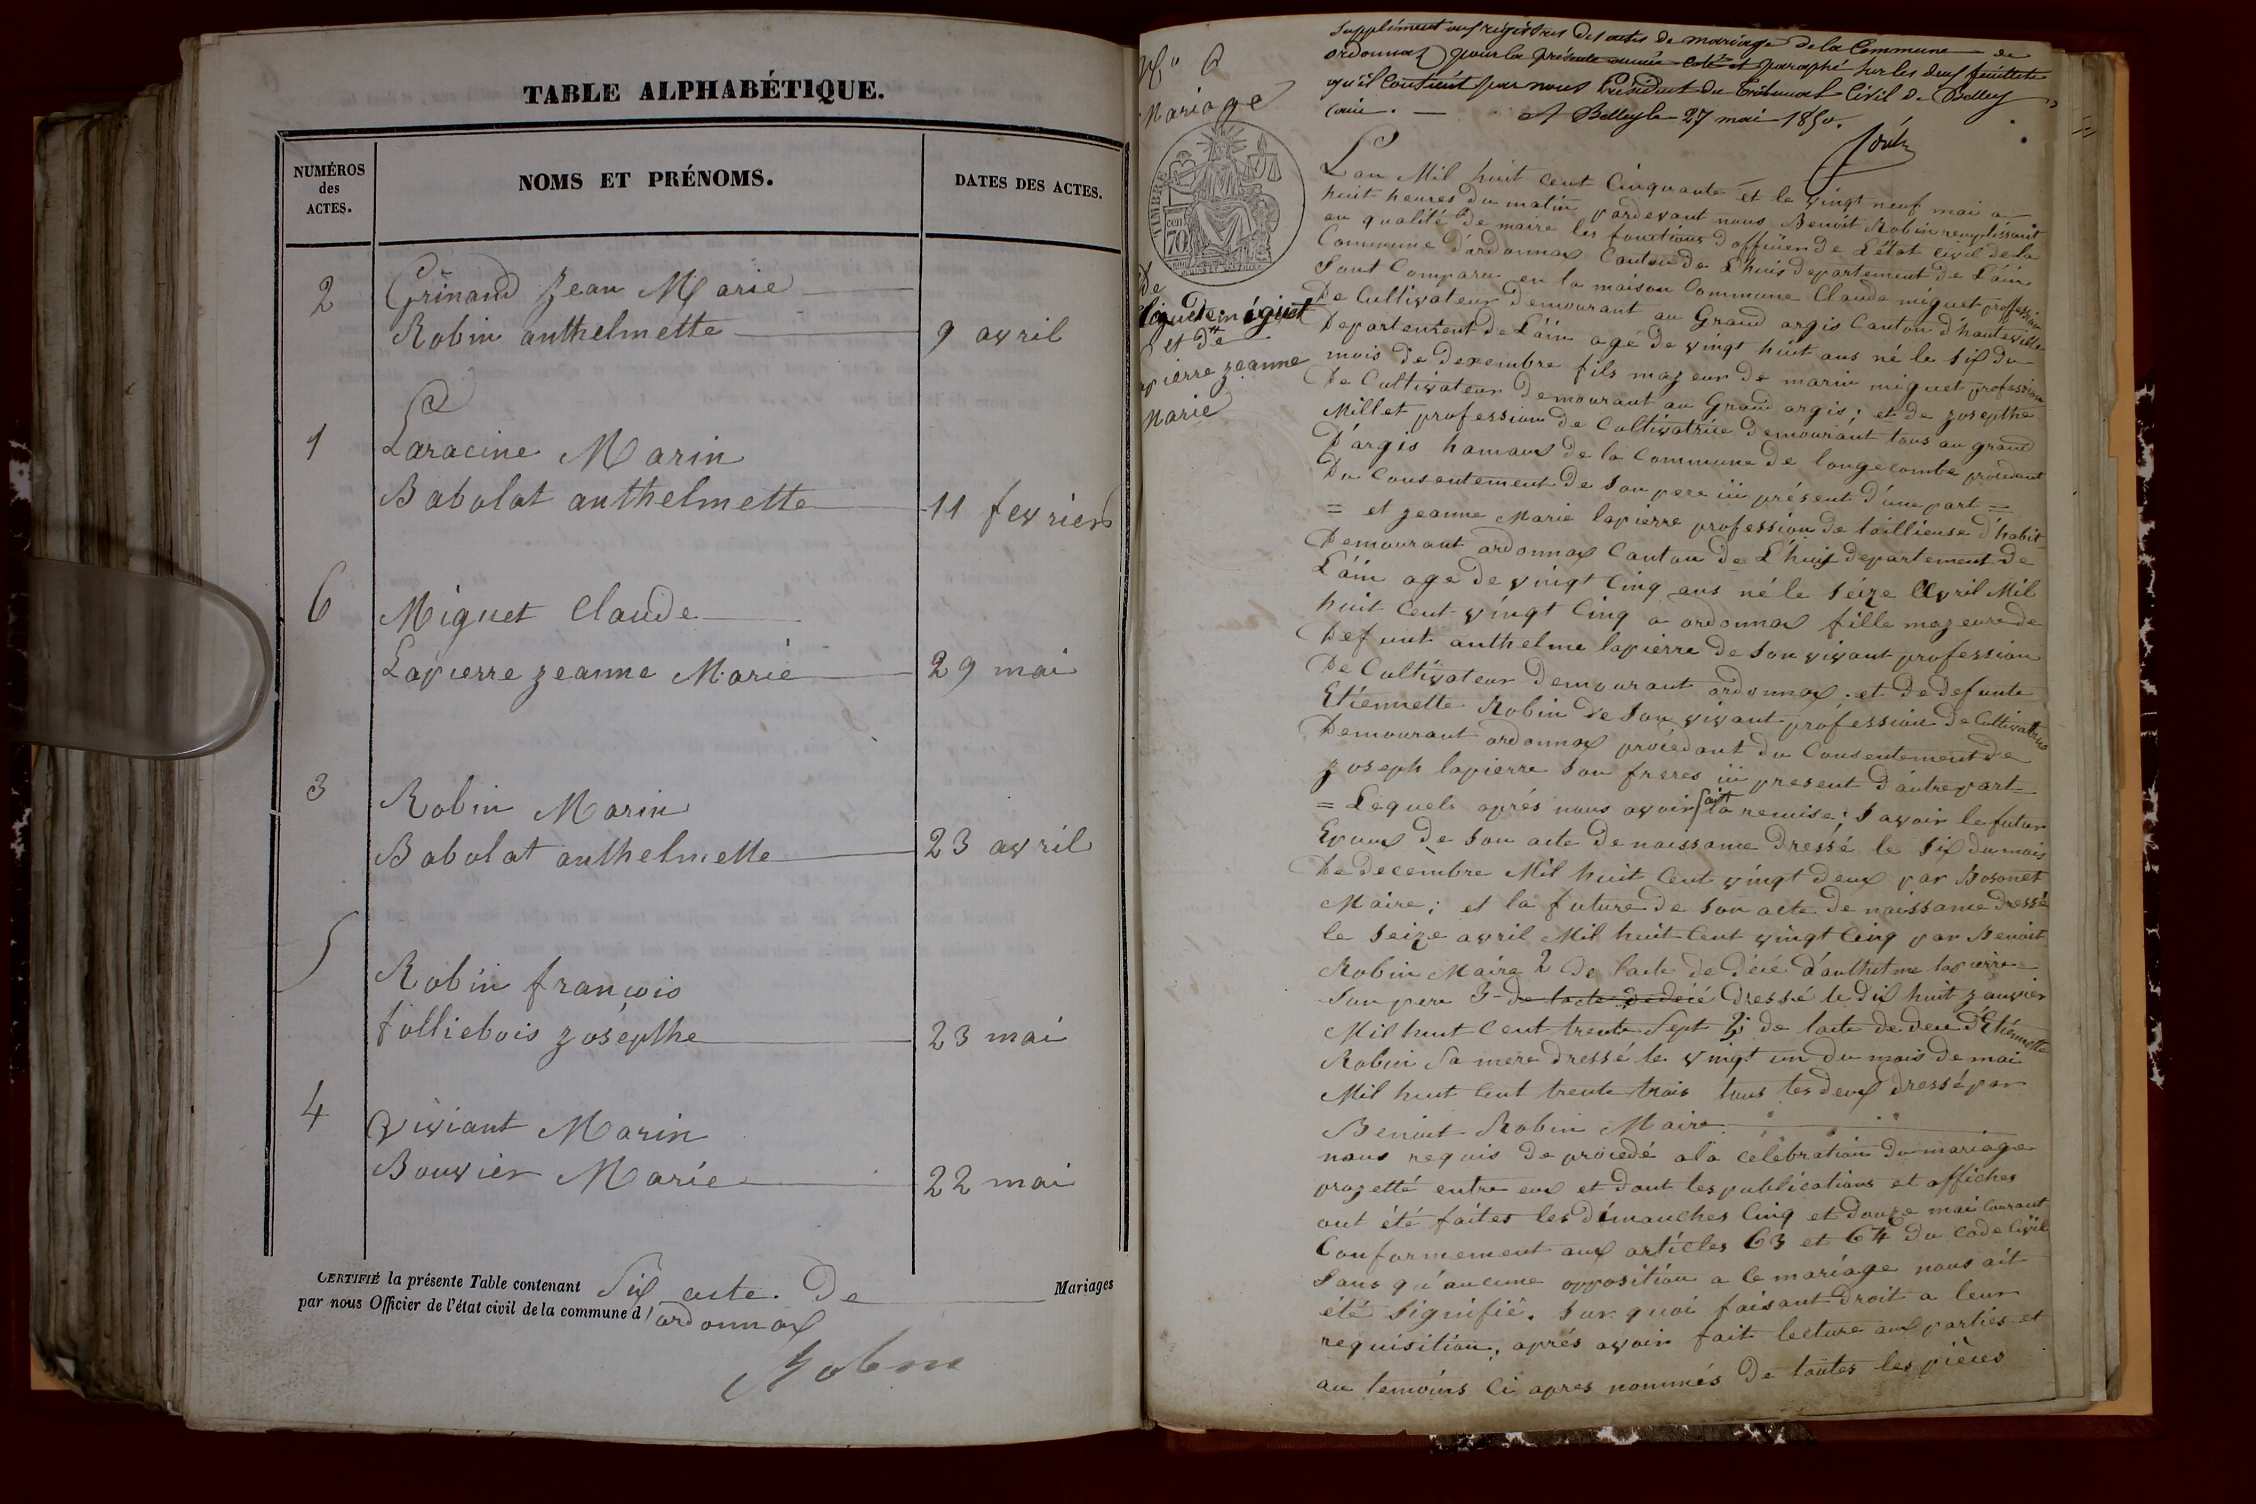 TABLE ALPHABÉTIQUE.
NUMÉROS
des
ACTES.
NOMS ET PRÉNOMS.
DATES DES ACTES.
2 Grinand Jean Marie
Robin anthelmette 9 avril
1 Laracine Marin
Babolat anthelmette 11 fevrier
6 Miguet Claude
Lapierre Jeanne Marie 29 mai
3 Robin Marin
Babolat anthelmette 23 avril
5 Robin françois
folliebois Josepthe 23 mai
4 Viviant Marin
Bouvier Marie 22 mai
CERTIFIÉ la présente Table contenant Six acte de Mariages
par nous Officier de l'état civil de la commune d'ordonnax
Robin
N° 6
Mariage
TIMBRE
70
De
Claude miguet
et de
lapierre jeanne
Marie
Supplément aux registres des actes de mariage de la Commune de
ordonnax pour la présente année coté et paraphé sur les deux feuillets
qu'il contient par nous Président du Tribunal Civil de Belley
A Belley le 27 mai 1850.
L'an Mil huit cent Cinquante et le vingt neuf mai a
huit heures du matin pardevant nous Benoit Robin remplissant
en qualité de maire les fonctions d'officier de L'état civil de la
Commune d'ardonnax Canton de L'huis departement de L'ain
Sont Comparu en la maison Commune Claude miguet profession
De Cultivateur demourant au Grand argis Canton d'hauteville
Departement de L'ain agé de vingt huit ans né le Six du
mois de dexembre fils majeur de marin miguet profession
De Cultivateur Demourant au Grand argis; et de Josepthe
Millet profession de Cultivatrice demourant tous au grand
D'argis hamaux de la Commune de longecombe procedant
Du Consentement de Son pere ici présent d'une part =
= et jeanne Marie lapierre profession de taillieuse d'habit
Demourant ordonnax Canton de L'huis departement de
L'ain age de vingt Cinq ans né le Seize Avril Mil
huit Cent vingt Cinq a ordonnax fille majeure de
Defunt anthelme lapierre de Son vivant profession
De Cultivateur Demourant ordonnax. et de defunte
Etiennette Robin de Son vivant profession de Cultivatrice
Demourant ordonnax procedant du Consentement de
Joseph lapierre Son freres ici present d'autre part =
= Lequels aprés nous avoir fait la remise; Savoir le futur
Epoux de Son acte de naissance dressé le Six du mois
De decembre Mil huit Cent vingt deux par Bosonet
Maire; et la future de Son acte de naissance dressé
le Seize avril Mil huit Cent vingt Cinq par Benoit
Robin Maire 2 de l'acte de décé d'anthelme lapierre
Son pere 3- de l'acte de décé Dressé le dix huit janvier
Mil huit Cent trente Sept 3 de l'acte de dece d'Etiennette
Robin Sa mere dressé le vingt un du mois de mai
Mil huit Cent trente trois tous les deux dressé par
Benoit Robin Maire
nous requis de procedé a la célébration du mariage
projetté entre eux et dont les publications et affiches
ont été faites les dimanches Cinq et douze mai Courant
Conformement aux articles 63 et 64 du Code Civil
Sans qu'aucune opposition a ce mariage nous ait
été Signifié. Sur quoi faisant droit a leur
requisition, aprés avoir fait lecture aux parties et
au temoins Ci apres nommés de toutes les pièces